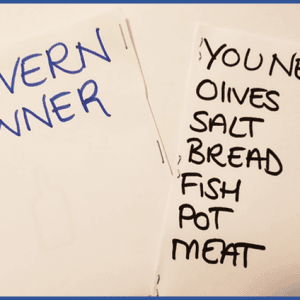 VERN
NNER
YOU NE
OlIVES
SALT
BREAD
FISH
POT
MEAT